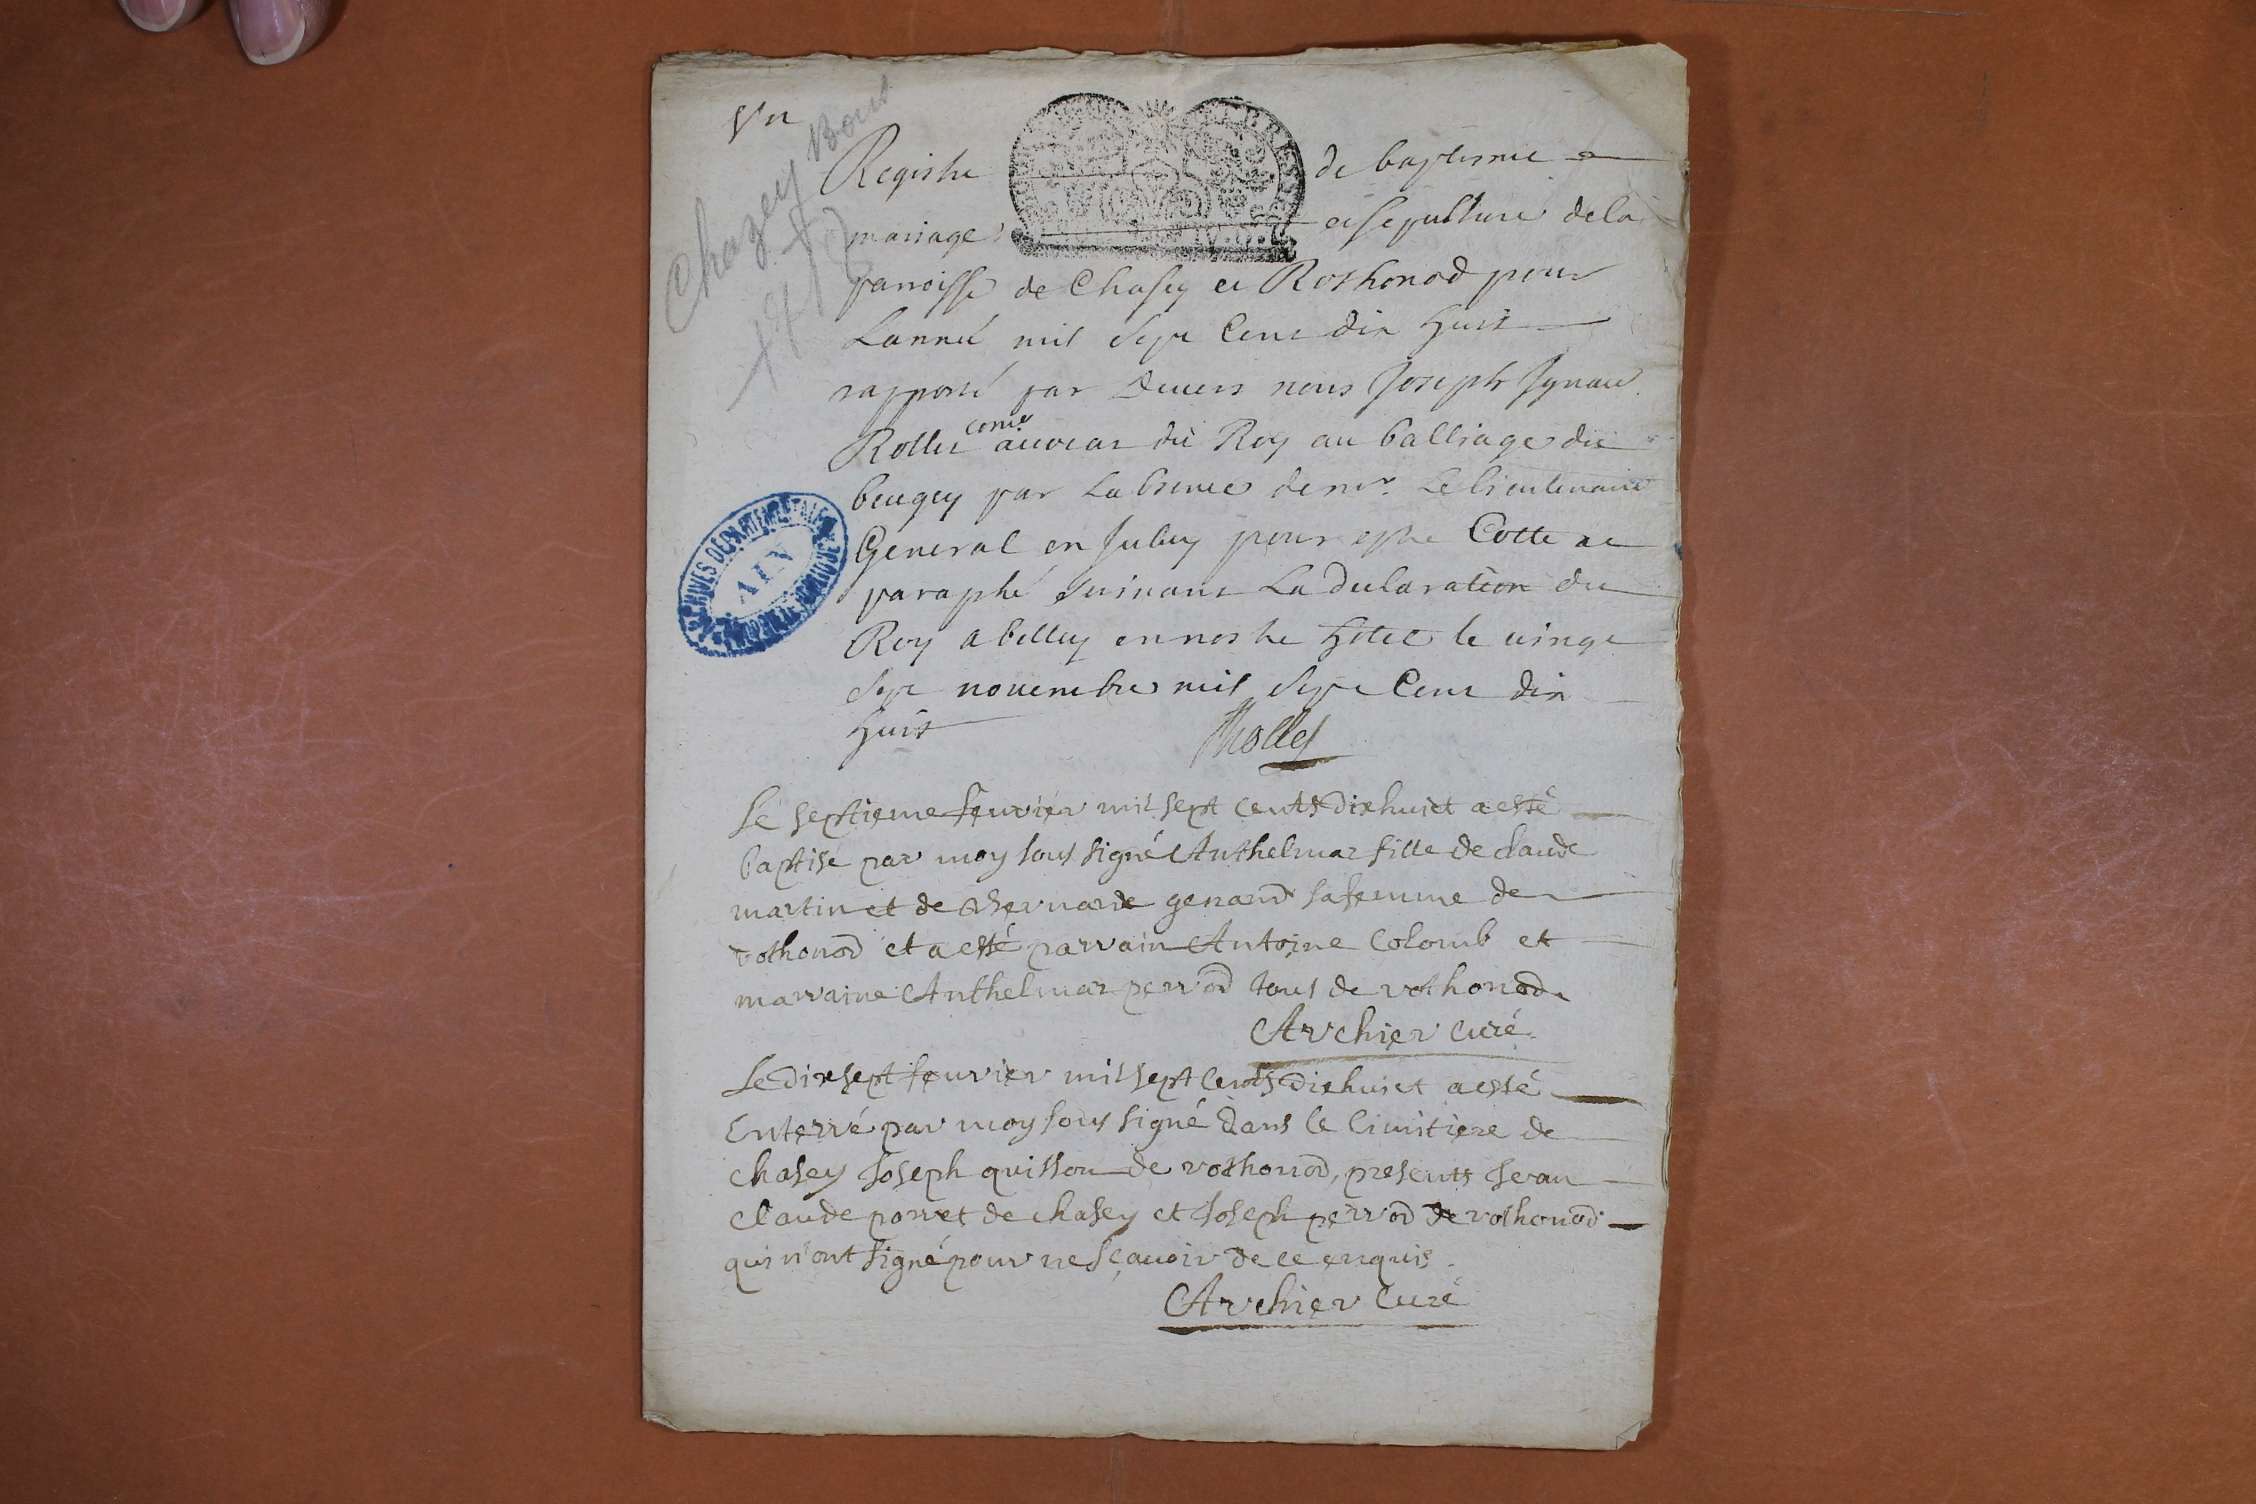 Vn
Chazey Bons
1718
Registre de baptisme
mariage et sepulture de la
parroisse de Chasey et Rothonod pour
Lanneé mil sept Cent dix huit
rapporté par devers nous Joseph Ignace
Rollet conser avocat du Roy au balliage du
beugey par Labsence de mr. Le lieutenant
General en pour estre Cotté et
paraphé suivant La declaration du
Roy a belley en nostre hotel le vingt
sept novembre mil sept Cent dix
huit
Rollet
ARCHIVES DEPARTEMENTALES
AIN
Le septieme feuvrier mil sept cents dixhuict a esté
baptisé par moy sous signé Anthelmaz fille de claude
martin et de Bernarde genand sa femme de
rothonod et a esté parrain Antoine Colomb et
marraine Anthelmaz perrod tous de rothonod.
Archier Curé.
Le dixsept feuvrier mil sept cents dixhuict a esté
Enterré par moy sous signé dans le Cimitiere de
Chasey Joseph quisson de rothonod, presents Jean
Claude porret de chasey et Joseph perrod de rothonod
qui n'ont signé pour ne sçavoir de ce enquis.
Archier Curé